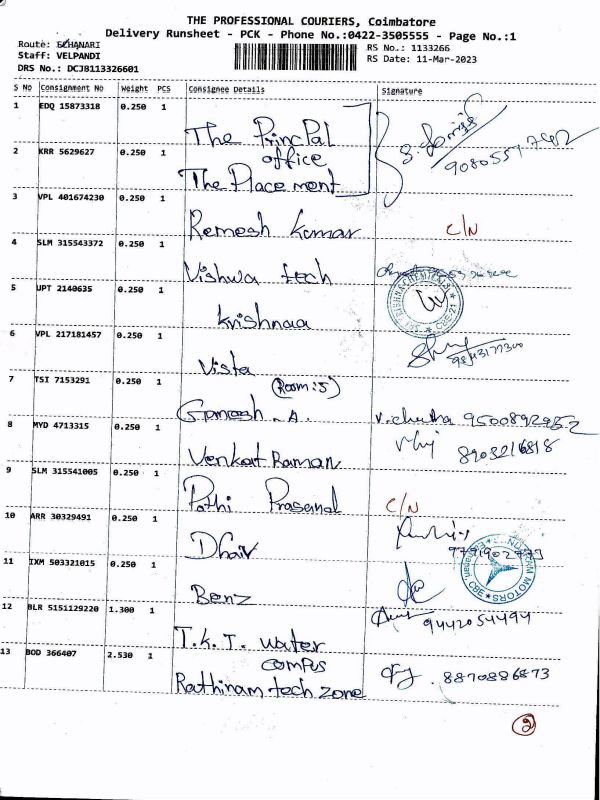 THE PROFESSIONAL COURIERS, Coimbatore
Delivery Runsheet - PCK - Phone No.:0422-3505555 - Page No.:1
Route: ECHANARI
RS No.: 1133266
Staff: VELPANDI
RS Date: 11-Mar-2023
DRS No.: DCJ8113326601
S No Consignment No Weight PCS Consignee Details Signature
1 EDQ 15873318 0.250 1 The Princpal
office
9080557
2 KRR 5629627 0.250 1 The Place ment
3 VPL 401674230 0.250 1 Remesh kumar C/N
4 SLM 315543372 0.250 1 Vishwa tech
5 UPT 2140635 0.250 1 krishnaa
6 VPL 217181457 0.250 1 Vista
7 TSI 7153291 0.250 1 (Room:5)
Ganesh . A. 9500892952
8 MYD 4713315 0.250 1 Venkat Raman 8903216818
9 SLM 315541005 0.250 1 Pothi Prasand C/N
10 ARR 30329491 0.250 1 Dhair
11 IXM 503321015 0.250 1 Benz
12 BLR 5151129220 1.300 1 T.K.T. water 9442054494
13 BOD 366407 2.530 1 compus
Rathinam tech zone 8870886873
2